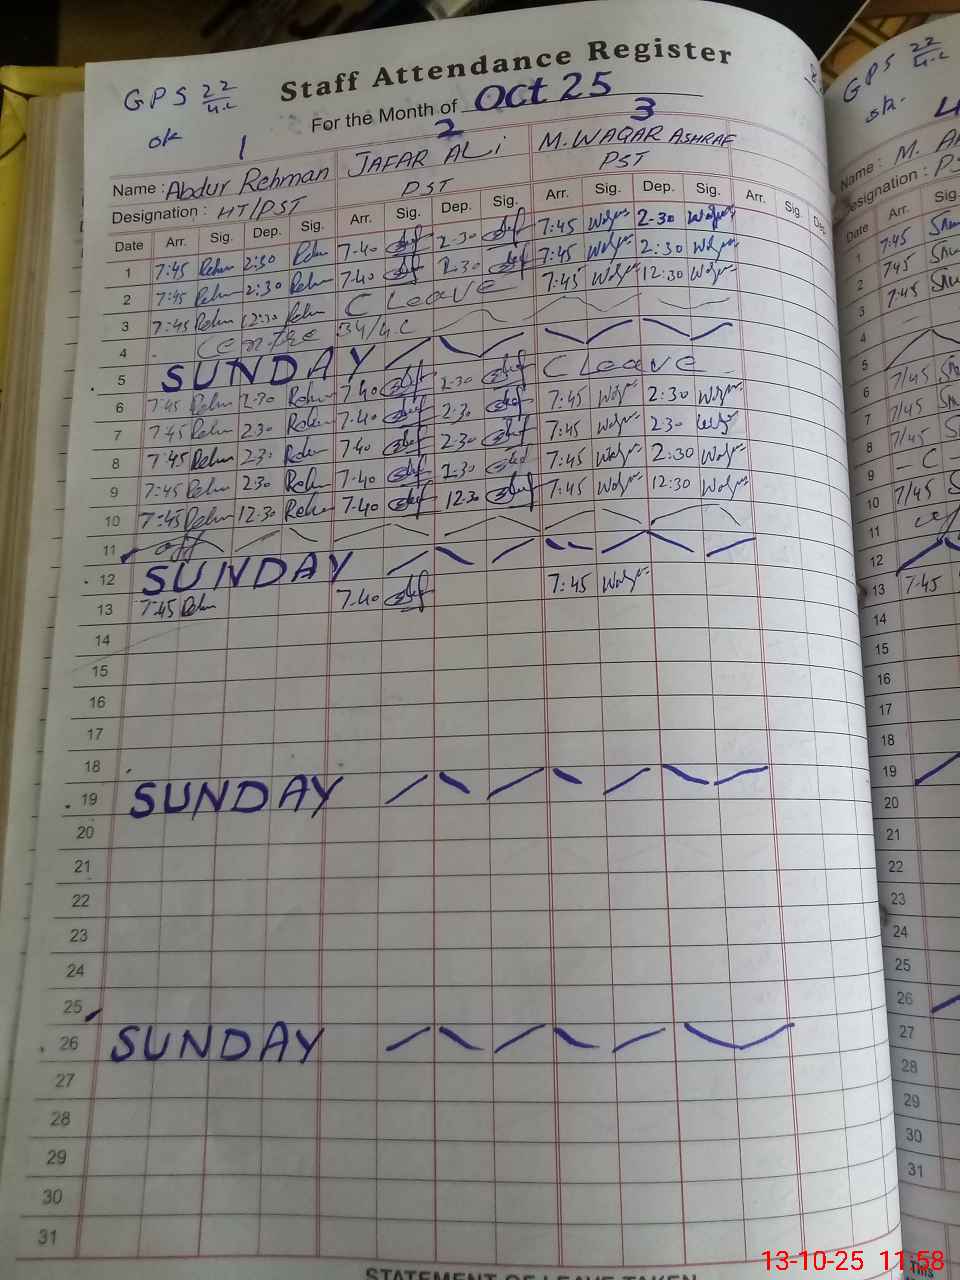 GPS 22/4.L
Staff Attendance Register
ok
For the Month of Oct 25
1 2 3
Name : Abdur Rehman JAFAR ALi M. WAQAR ASHRAF
Designation : HT/PST PST PST
Date Arr. Sig. Dep. Sig. Arr. Sig. Dep. Sig. Arr. Sig. Dep. Sig. Arr. Sig. Dep.
1 7:45 Rehm 2:30 Rehm 7-40 2-30 7:45 Waqar 2-30 Waqar
2 7:45 Rehm 2:30 Rehm 7-40 2-30 7:45 Waqar 2:30 Waqar
3 7:45 Rehm 12:30 Rehm C Leave 7:45 Waqar 12:30 Waqar
4 Centre 34/4.L
5 SUNDAY
6 7:45 Rehm 2-30 Rehm 7-40 2-30 C Leave
7 7:45 Rehm 2.30 Rehm 7-40 2-30 7:45 Waqar 2:30 Waqar
8 7:45 Rehm 2.30 Rehm 7-40 2-30 7:45 Waqar 2-30 Waqar
9 7:45 Rehm 2.30 Rehm 7-40 2-30 7:45 Waqar 2:30 Waqar
10 7:45 Rehm 12-30 Rehm 7-40 12-30 7:45 Waqar 12:30 Waqar
11 off
12 SUNDAY
13 7:45 Rehm 7-40 7:45 Waqar
14
15
16
17
18
19 SUNDAY
20
21
22
23
24
25
26 SUNDAY
27
28
29
30
31
STATEMENT OF LEAVE TAKEN
GPS 22/4.L
ok.
Name : M.
Designation : PS
Date Arr. Sig.
1 7:45
2 7:45
3 7:45
4
5
6 7/45
7 7/45
8 7/45
9 C
10 7/45
11 off
12
13 7:45
14
15
16
17
18
19
20
21
22
23
24
25
26
27
28
29
30
31
This
13-10-25 11:58